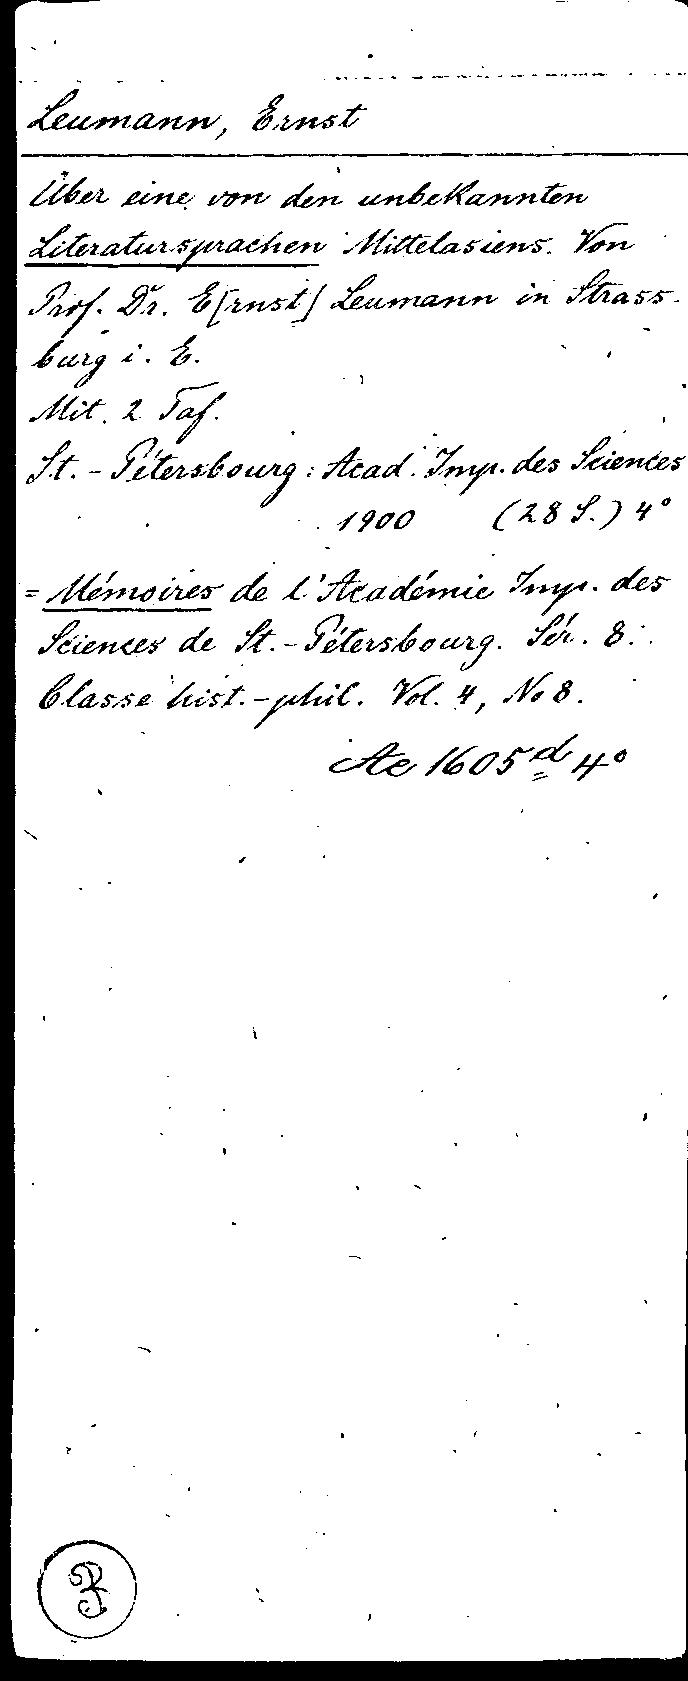 Leumann, Ernst
Über eine von den unbekannten
Literatursprachen Mittelasiens. Von
Prof. Dr. E[rnst] Leumann in Strass-
burg i. E.
Mit 2 Taf.
St.-Pétersbourg: Acad. Imp. des Sciences
1900 (28 S.) 4°
= Mémoires de l'Académie Imp. des
Sciences de St.-Pétersbourg. Sér. 8.
Classe hist.-phil. Vol. 4, No 8.
Ac 1605 d 4°